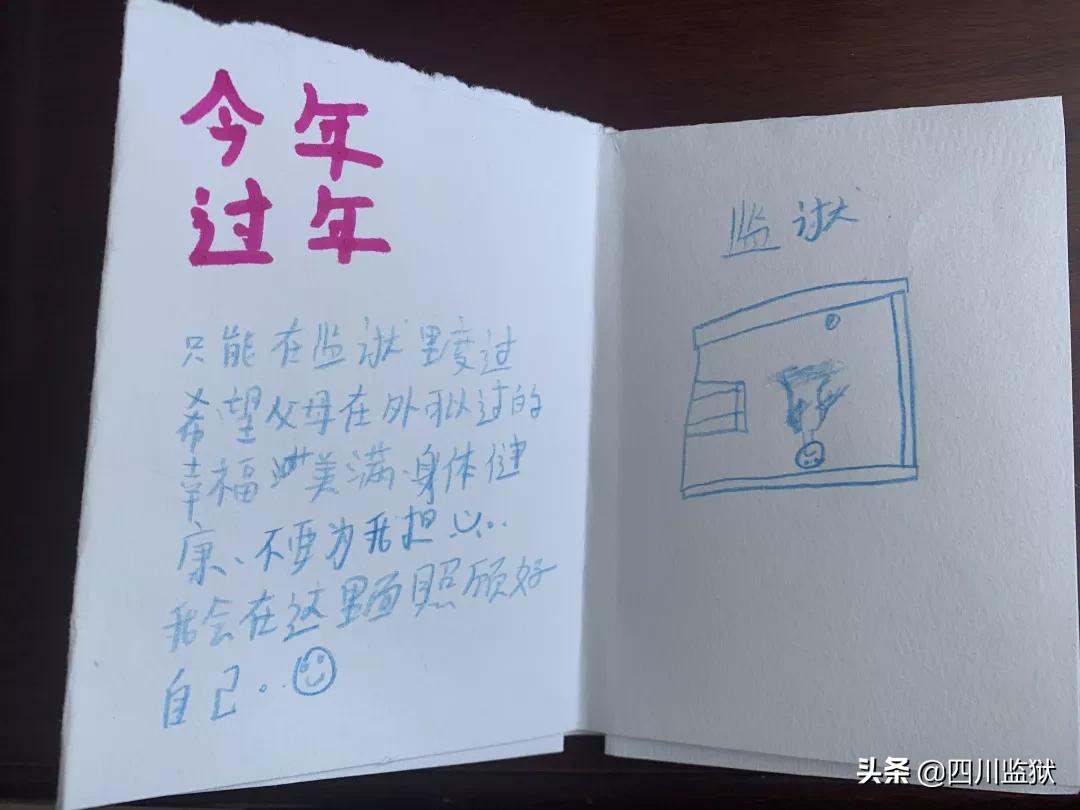 今年
过年
只能在监狱里度过
希望父母在外可以过的
幸福美满.身体健
康、不要为我担心..
我会在这里面照顾好
自己..
监狱
头条 @四川监狱